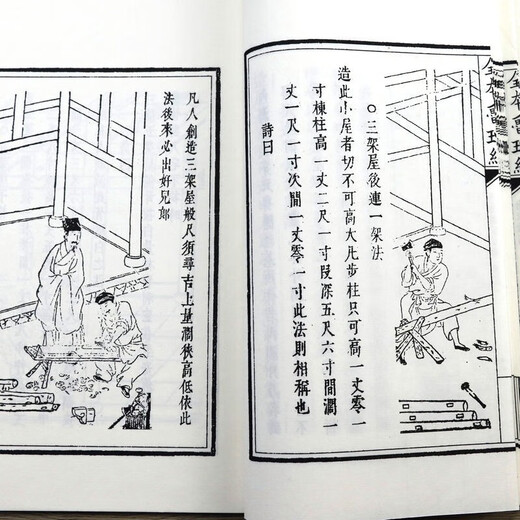 ○三架屋後連一架法
造此小屋者切不可高大凡步柱只可高一丈零一
寸棟柱高一丈二尺一寸段深五尺六寸間濶一
丈一尺一寸次間一丈零一寸此法則相稱也
詩曰
凡人創造三架屋般尺須尋吉上量濶狹高低依此
法後來必出好兒郎